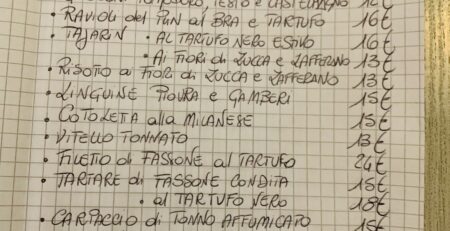 POMODORO, PESTO e CASTELMAGNO 12€
• RAVIOLI del PLIN al BRA e TARTUFO 16€
• TAJARIN • AL TARTUFO NERO ESTIVO 16€
• AI FIORI di ZUCCA e ZAFFERANO 13€
• RISOTTO ai FIORI di ZUCCA e ZAFFERANO 13€
• LINGUINE e GAMBERI 15€
• COTOLETA alla MILANESE 15€
• VITELLO TONNATO 13€
• FILETTO di FASSONE al TARTUFO 24€
• TARTARE di FASSONE CONDITA 15€
• al TARTUFO NERO 18€
• CARPACCIO di TONNO AFFUMICATO 15€